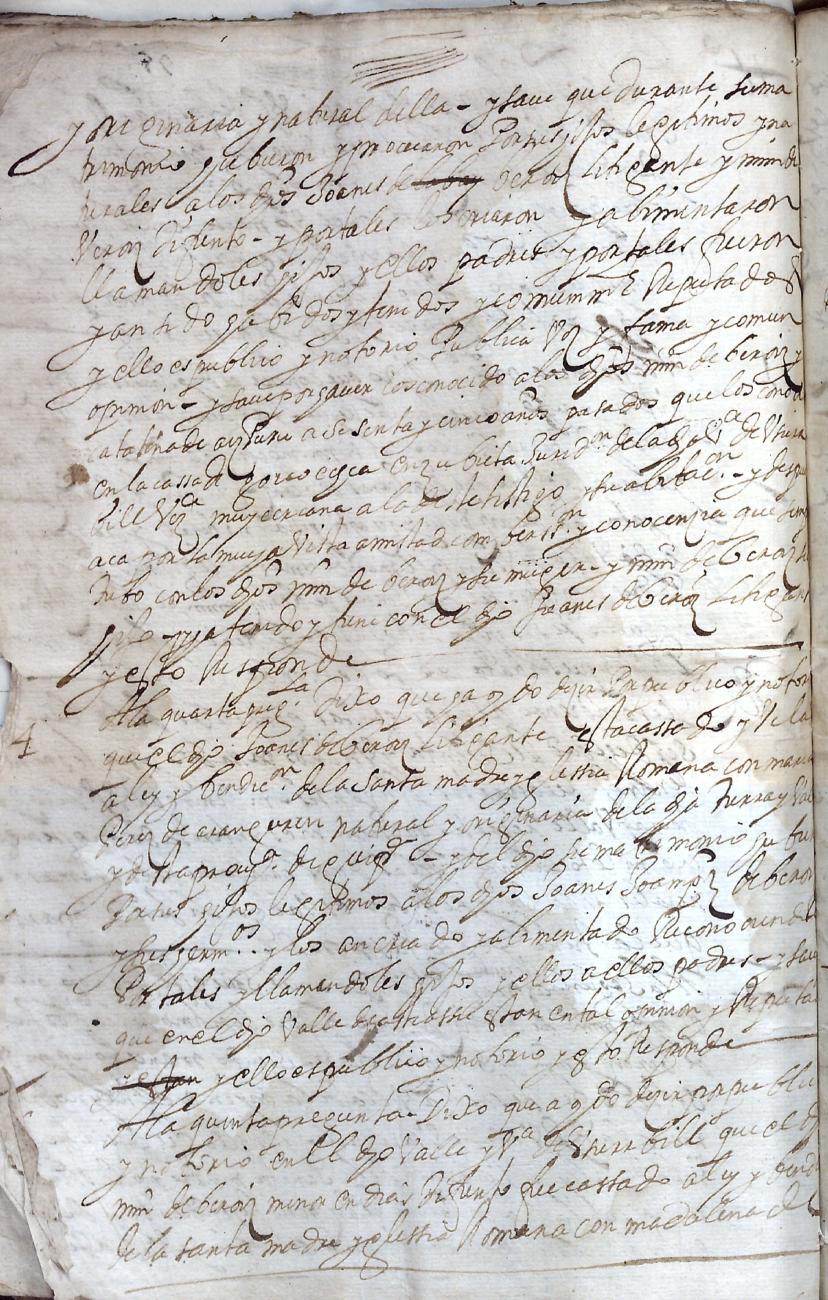 y originaria y natural della - y save que durante su ma
trimonio hubieron y procrearon por sus hijos legitimos y na
turales a los dhos Joanes de Beroiz litigante y min de
Veroiz difunto - y por tales los criaron y alimentaron
llamandoles hijos y ellos padres y por tales fueron
y an sido habidos y tenidos y comunmte Reputados
y ello es publico y notorio publica voz y fama y comun
opinion - y save por haver los conocido a los dhos min de beroiz y
catalina de aizpuru a sesenta y cinco años pasados que los conoció
en la cassa de en Zubieta Juridon de la dha va de Usur
bill muy cercana a la deste testigo y su abitacon - y despues
aca por la mucha vista amistad comberson y conocenzia que siempre
tubo con los dhos min de beroiz y su muger - y min de beroiz su
hijo - y ha tenido y tiene con el dho Joanes de beroiz litigante
y esto Responde
4 A la quarta pregta Dixo que ha oydo dezir por publico y notorio
que el dho Joanes de beroiz litigante esta cassado y vela
a ley y bendicon de la santa madre yglessia Romana con maria
Perez de aranguren natural y originaria de la dha tierra y valle
y desta provija de guipa - y del dho su matrimonio hubo
por sus hijos legitimos a los dhos Joanes Joan perez de beroiz
y sus hermos y los an criado y alimentado Reconociendo
por tales y llamandoles hijos y ellos a ellos padres - y save
que en el dho valle estan en tal opinion y Reputa
y estan y ello es publico y notorio y esto Responde
A la quinta pregunta Dixo que a oydo dezir por publico
y notorio en el dho valle y va de Usurbill que el dho
min de beroiz menor en dias difunto fue cassado a ley y bendi
de la santa madre yglessia Romana con madalena de